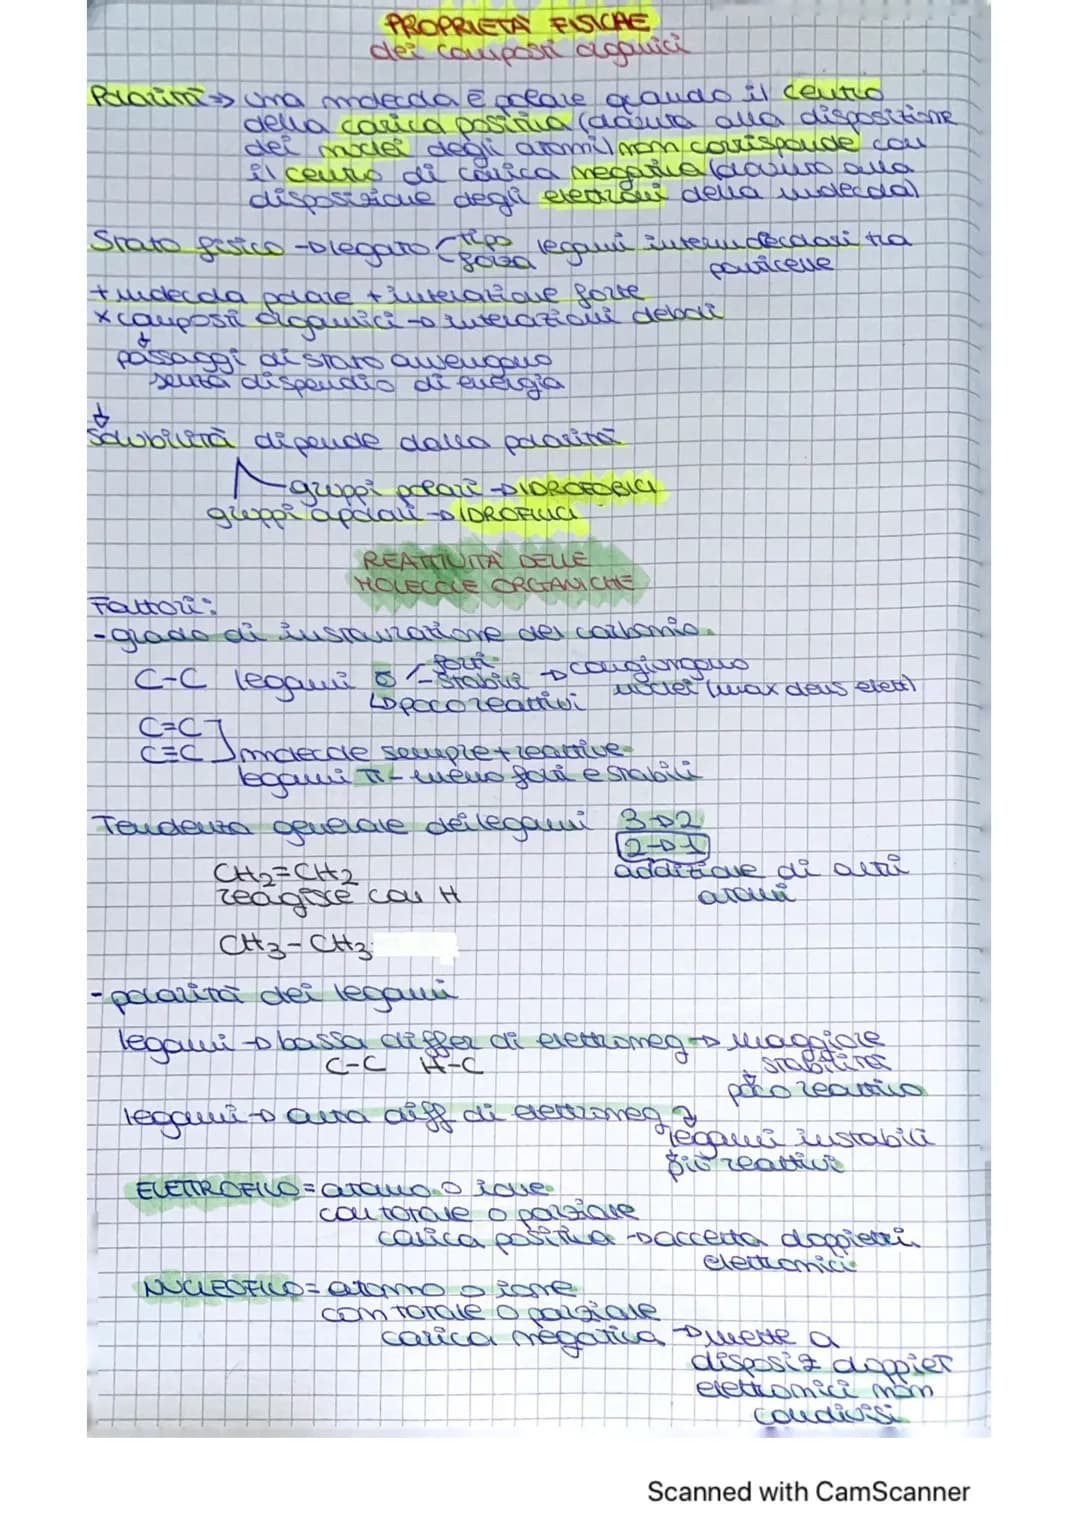 PROPRIETÀ FISICHE
dei composti organici
Polarità → una molecola è polare quando il centro
della carica positiva (dovuta alla disposizione
dei nuclei degli atomi) non corrisponde con
il centro di carica negativa (dovuto alla
disposizione degli elettroni della molecola)
Stato fisico → legato tipo legami intermolecolari tra
forza particelle
+ molecola polare + interazione forte
x composti organici → interazioni deboli
↓
passaggi di stato avvengono
senza dispendio di energia
↓
Solubilità dipende dalla polarità
gruppi polari → IDROFOBICI
gruppi apolari → IDROFILICI
REATTIVITÀ DELLE
MOLECOLE ORGANICHE
Fattori:
- grado di instaurazione del carbonio
C-C legami σ - forti
- stabili → congiungono
nuclei (max dens elett)
↳ poco reattivi
C=C
C≡C molecole sempre + reattive
legami π - meno forti e stabili
Tendenza generale dei legami 3→2
2→1
CH2=CH2 addizione di altri
reagisce con H atomi
CH3-CH3
- polarità dei legami
legami → bassa differ di elettroneg → maggiore
C-C H-C stabilità
↓
poco reattivo
legami → alta diff di elettroneg
legami instabili
più reattivi
ELETTROFILO = atomo o ione
con totale o parziale
carica positiva → accetta doppietti
elettronici
NUCLEOFILO = atomo o ione
con totale o parziale
carica negativa → mette a
disposiz doppiet
elettronici non
condivisi
Scanned with CamScanner